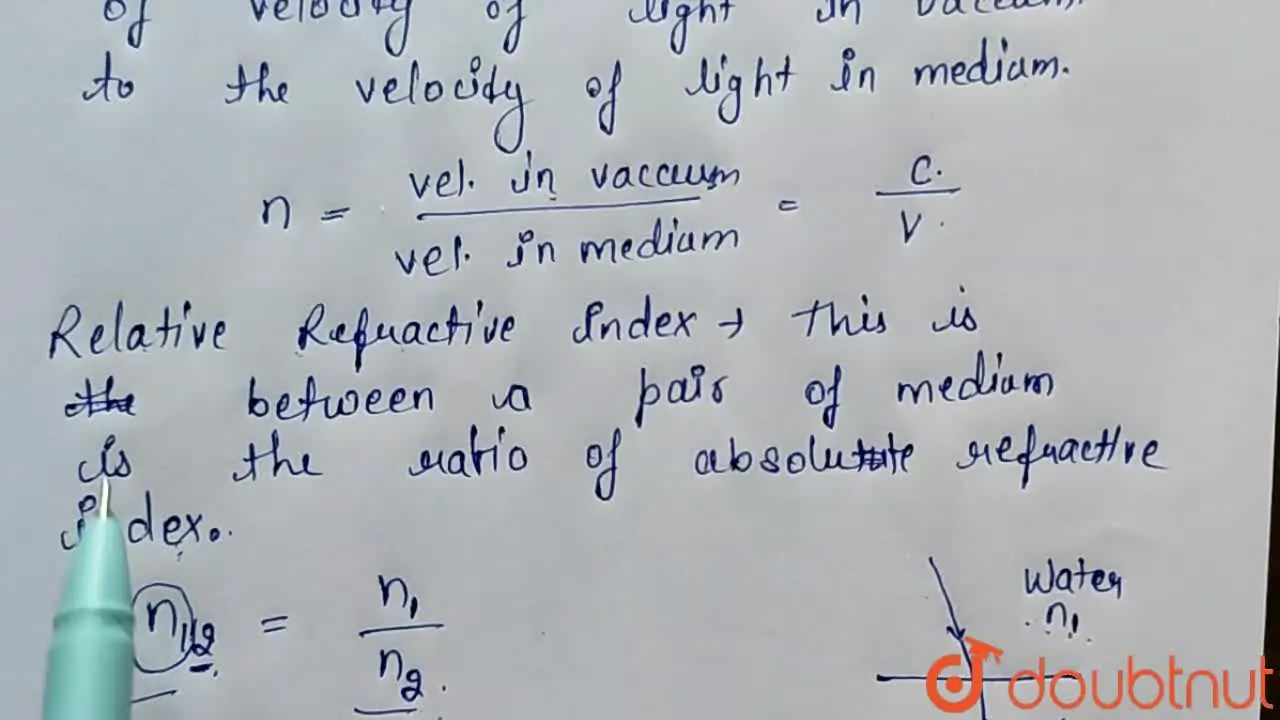 of velocity of light in vaccum.
to the velocity of light in medium.
n = vel. in vaccuum / vel. in medium = c. / v.
Relative Refractive Index → this is
the between a pair of medium
is the ratio of absolute refractive
index.
n12 = n1 / n2
Water
n1
doubtnut